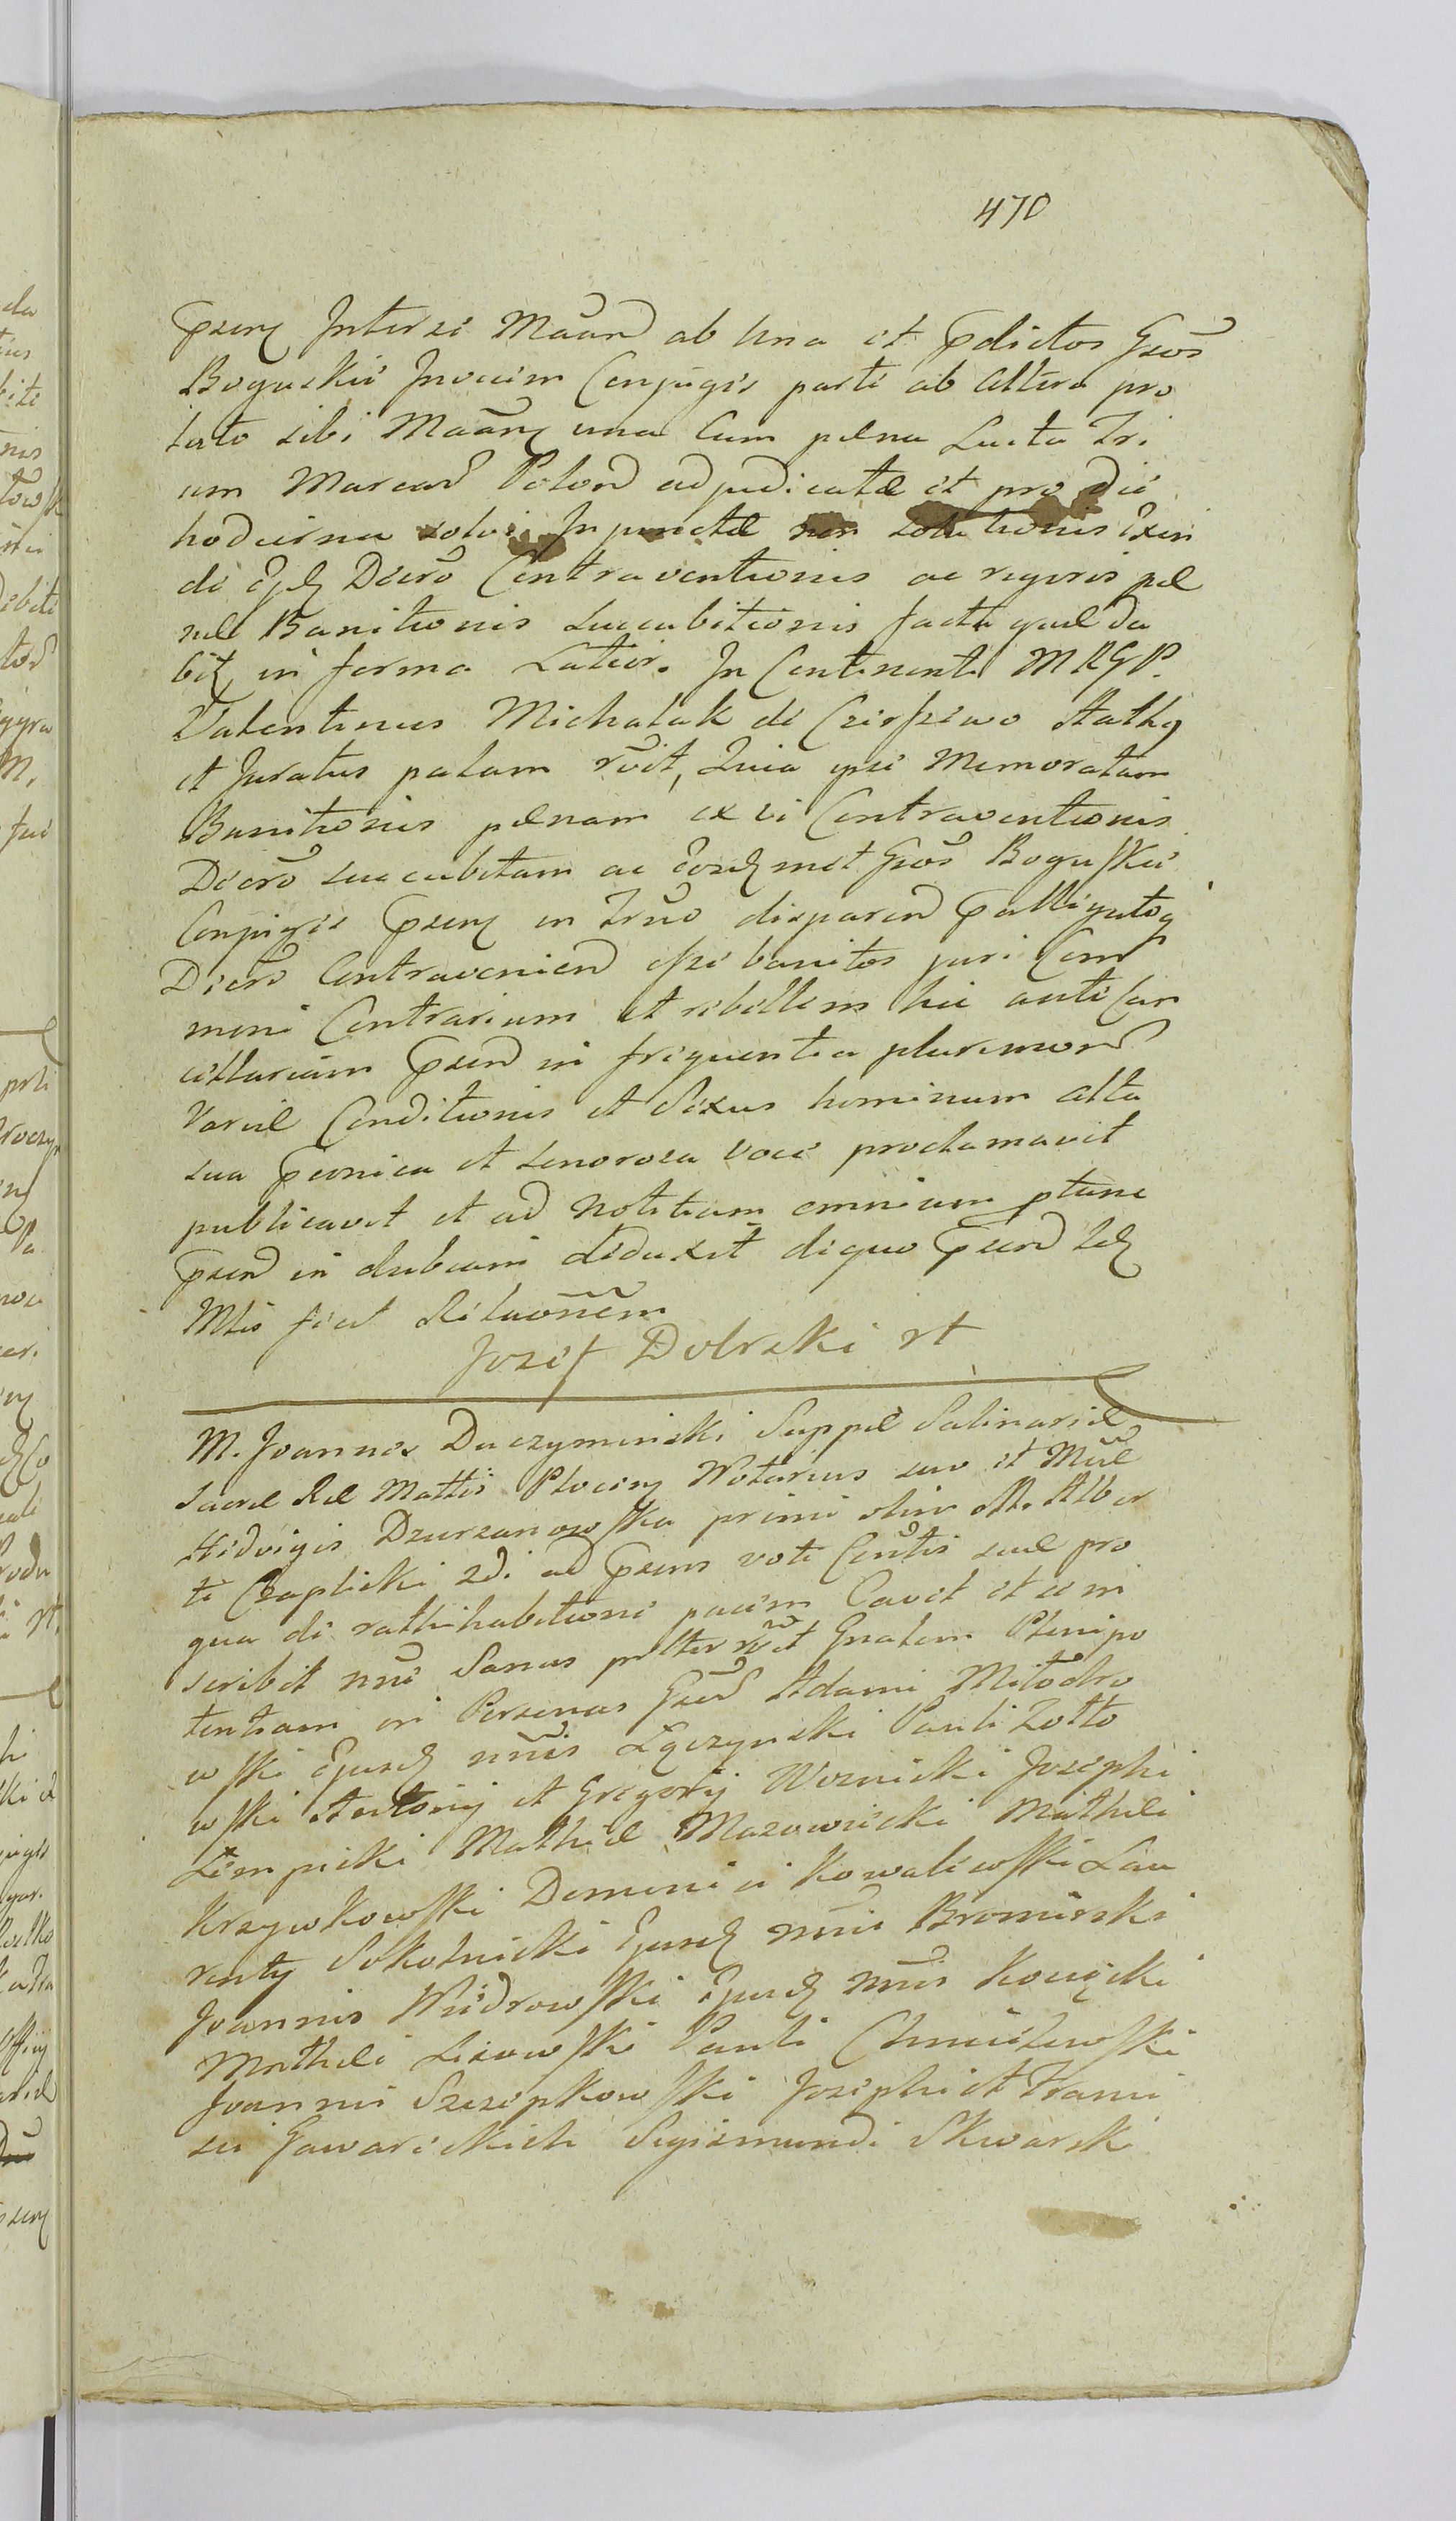 470
psenq Inter se Maand ab una et pdictos Gros
Boguskie Invicem Conjuges parte ab altera pro
lato sibi Maanq una cum pæna Lucta Tri
um Marcar Polon adjudicatæ et pro die
hodierna solvi Injunctæ non solutionis Exin
de Decro Contraventionis ac rigoris pæ
næ Banitionis succubitionis facta quæ da
bit in forma Latior. In Continenti MRGP.
Valentinus Michalak de Czerszewo
et Juratus palam rvit, Quia ipse Memoratam
Banitionis pænam ex vi Contraventionis
Decro succubitam ac Eosdmet Gros Boguskie
Conjuges psenq in Trno disparend
Decro Contravenien esse banitos juri Com
muni Contrarium et rebellem hic ante Can
cellariam psend in frequentia plurimor
Variæ Conditionis et Sexus hominum alta
sua pconica et sonorosa voce proclamavit
publicavit et ad Notitiam omnium ptunc
psend in dubiam deduxit de quo psend
Mtis fecit Relaonem
Josef Dobrski rt
M. Joannes Duczyminski Suppæ Salinariæ
Sacræ Ræ Mattis Plocen Notarius suo et Mcæ
Hedvigis Dzierzanowska primi olim M. Alber
ti Czaplicki 2di ad psens voti Contis suæ pro
qua de rathihabitione pacem Cavet et se in
scribit nne Sanus pltter rvit Gnalem Plenipo
tentiam in Personas Gsor Adami Milodro
wski Ejusd nnis Łączynski Pauli Zotto
wski Antonij et Gregorij Woznicki Josephi
Lempicki Mathiæ Mazowiecki Mathei
Krzywkowski Dominici Kowalewski Lau
renty Sokolnicki Ejusd nnis Bromirski
Joannis Wiidrowski Ejusd nnis Konicki
Mathei Lisowski Pauli Chmielewski
Joannis Szczepkowski Josephi et Franci
sci Gawareckich Sigismundi Skwarski